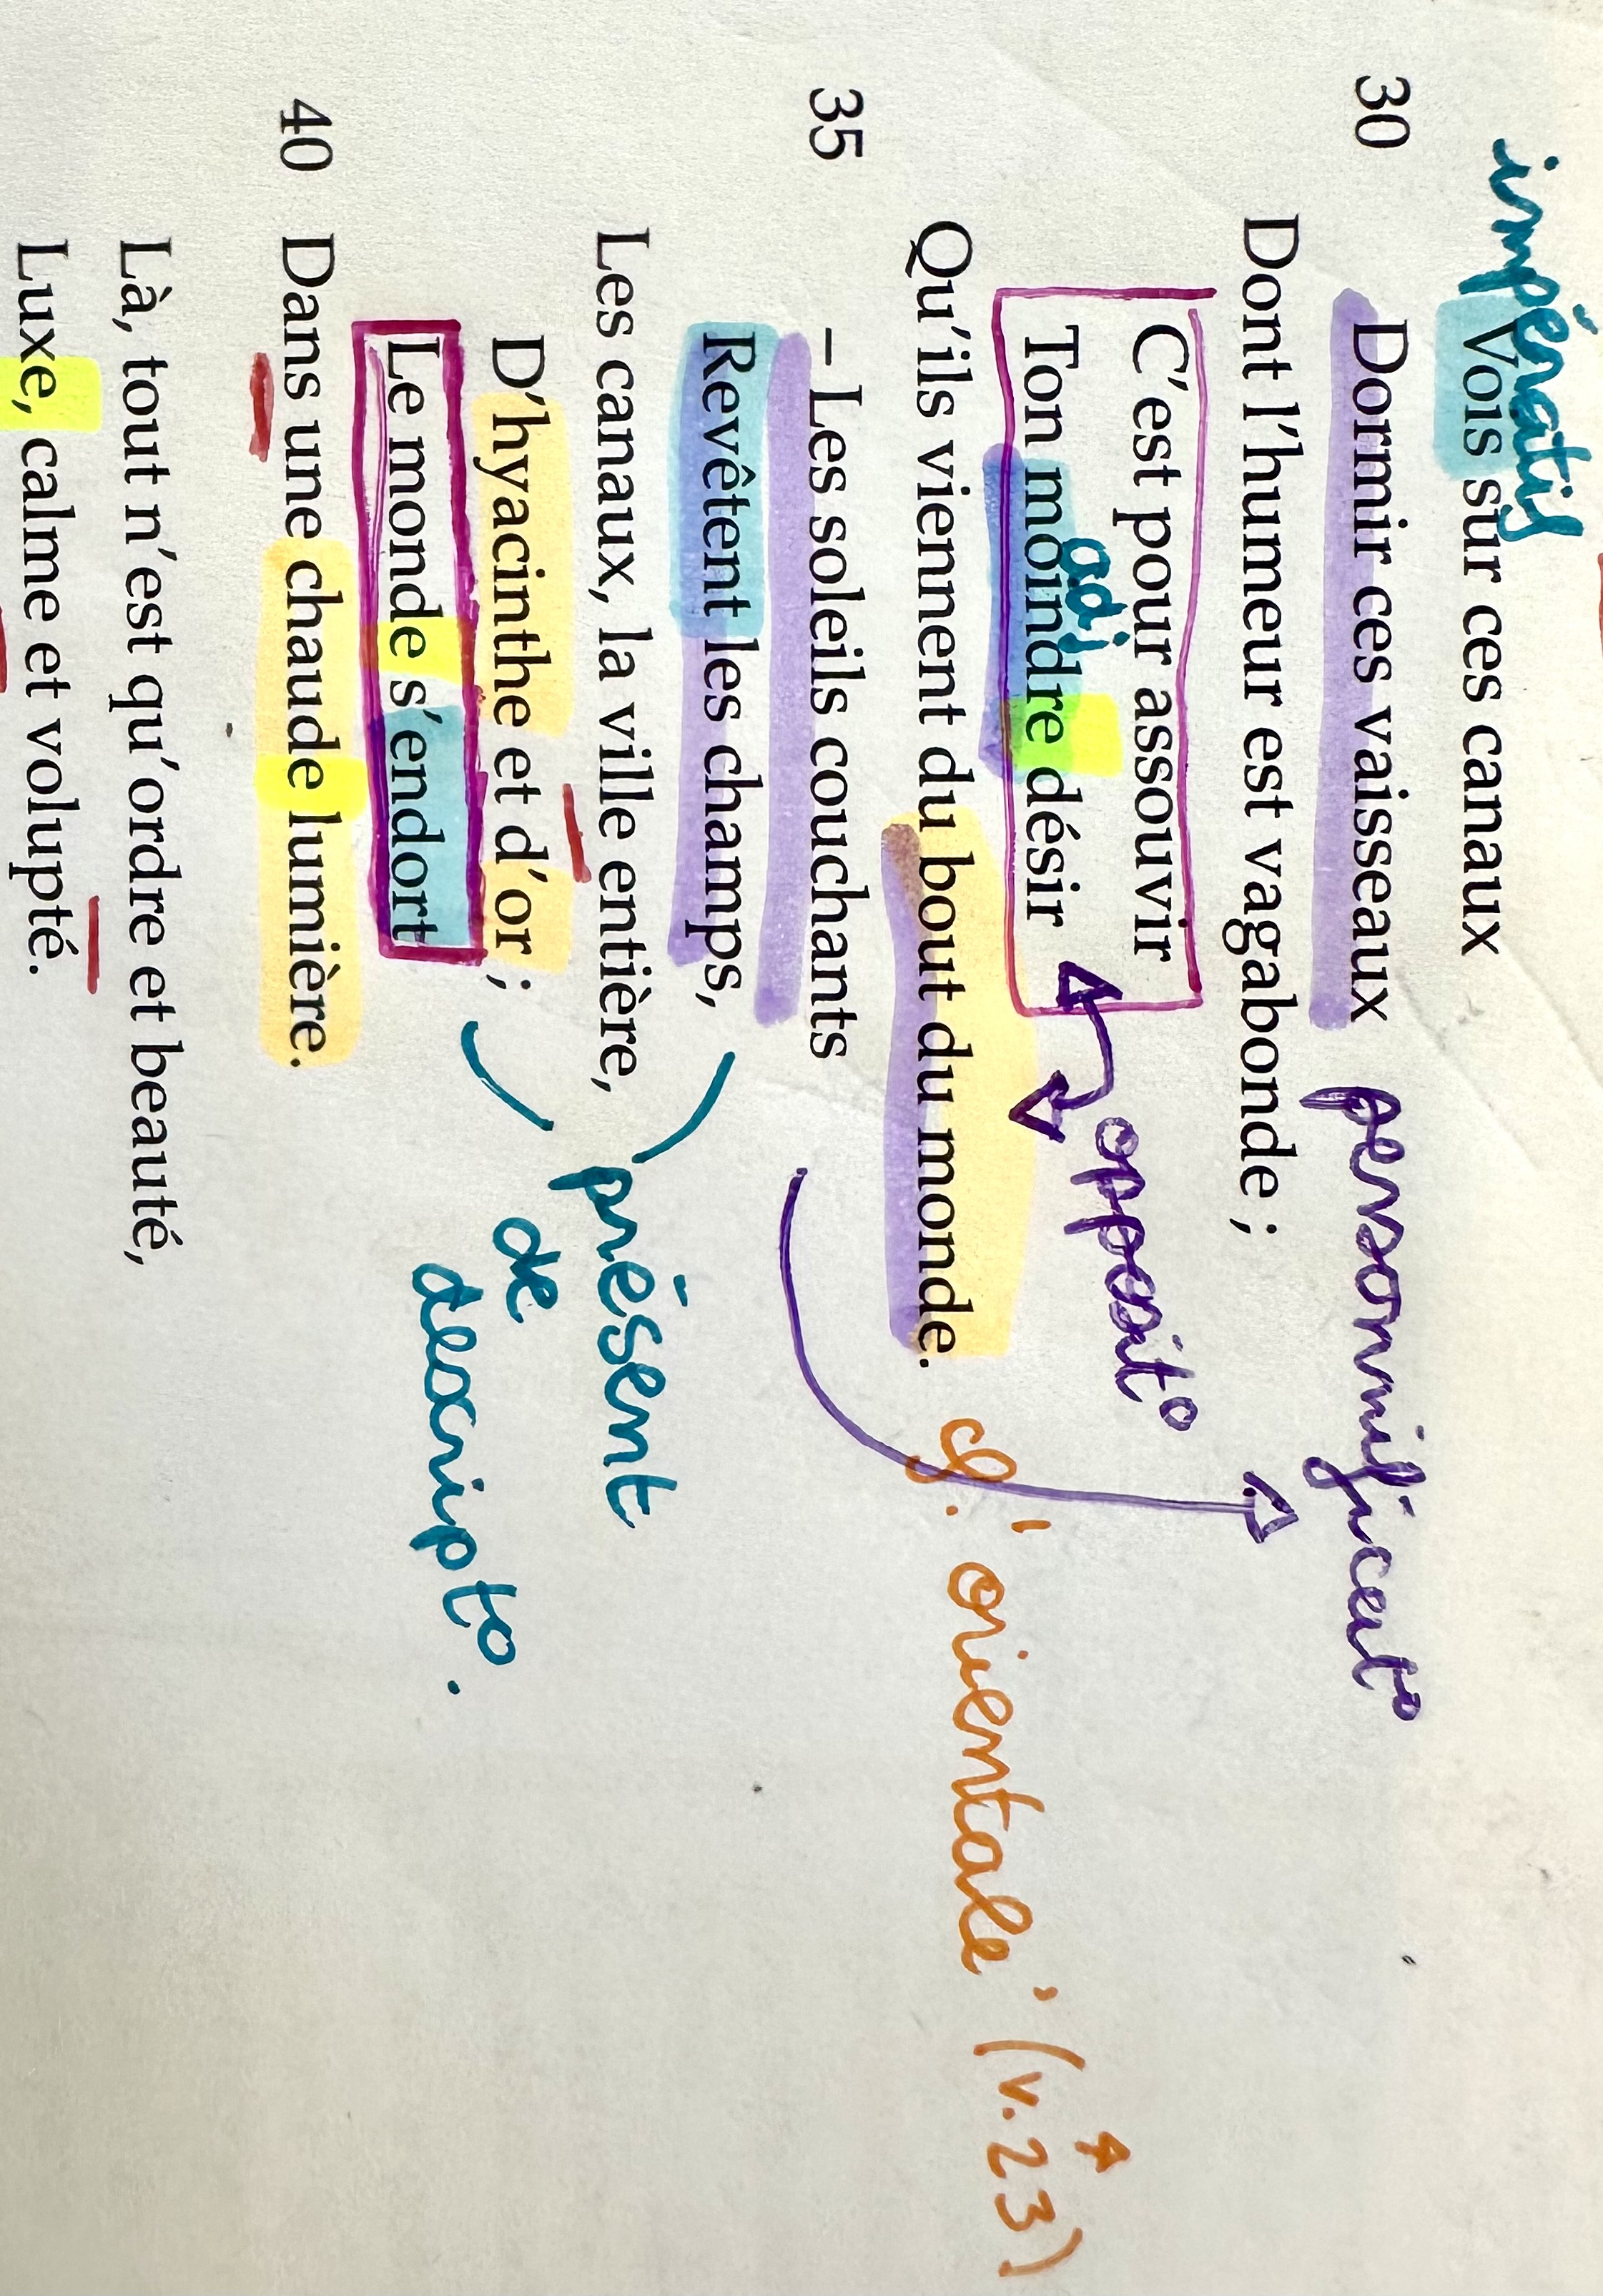 impératif
Vois sur ces canaux
30 Dormir ces vaisseaux personnificat°
Dont l'humeur est vagabonde ;
C'est pour assouvir
adj
Ton moindre désir opposit°
Qu'ils viennent du bout du monde. cf. 'orientale' (v.23)
35 – Les soleils couchants
Revêtent les champs,
Les canaux, la ville entière, présent
D'hyacinthe et d'or ; de
Le monde s'endort descript°.
40 Dans une chaude lumière.
Là, tout n'est qu'ordre et beauté,
Luxe, calme et volupté.